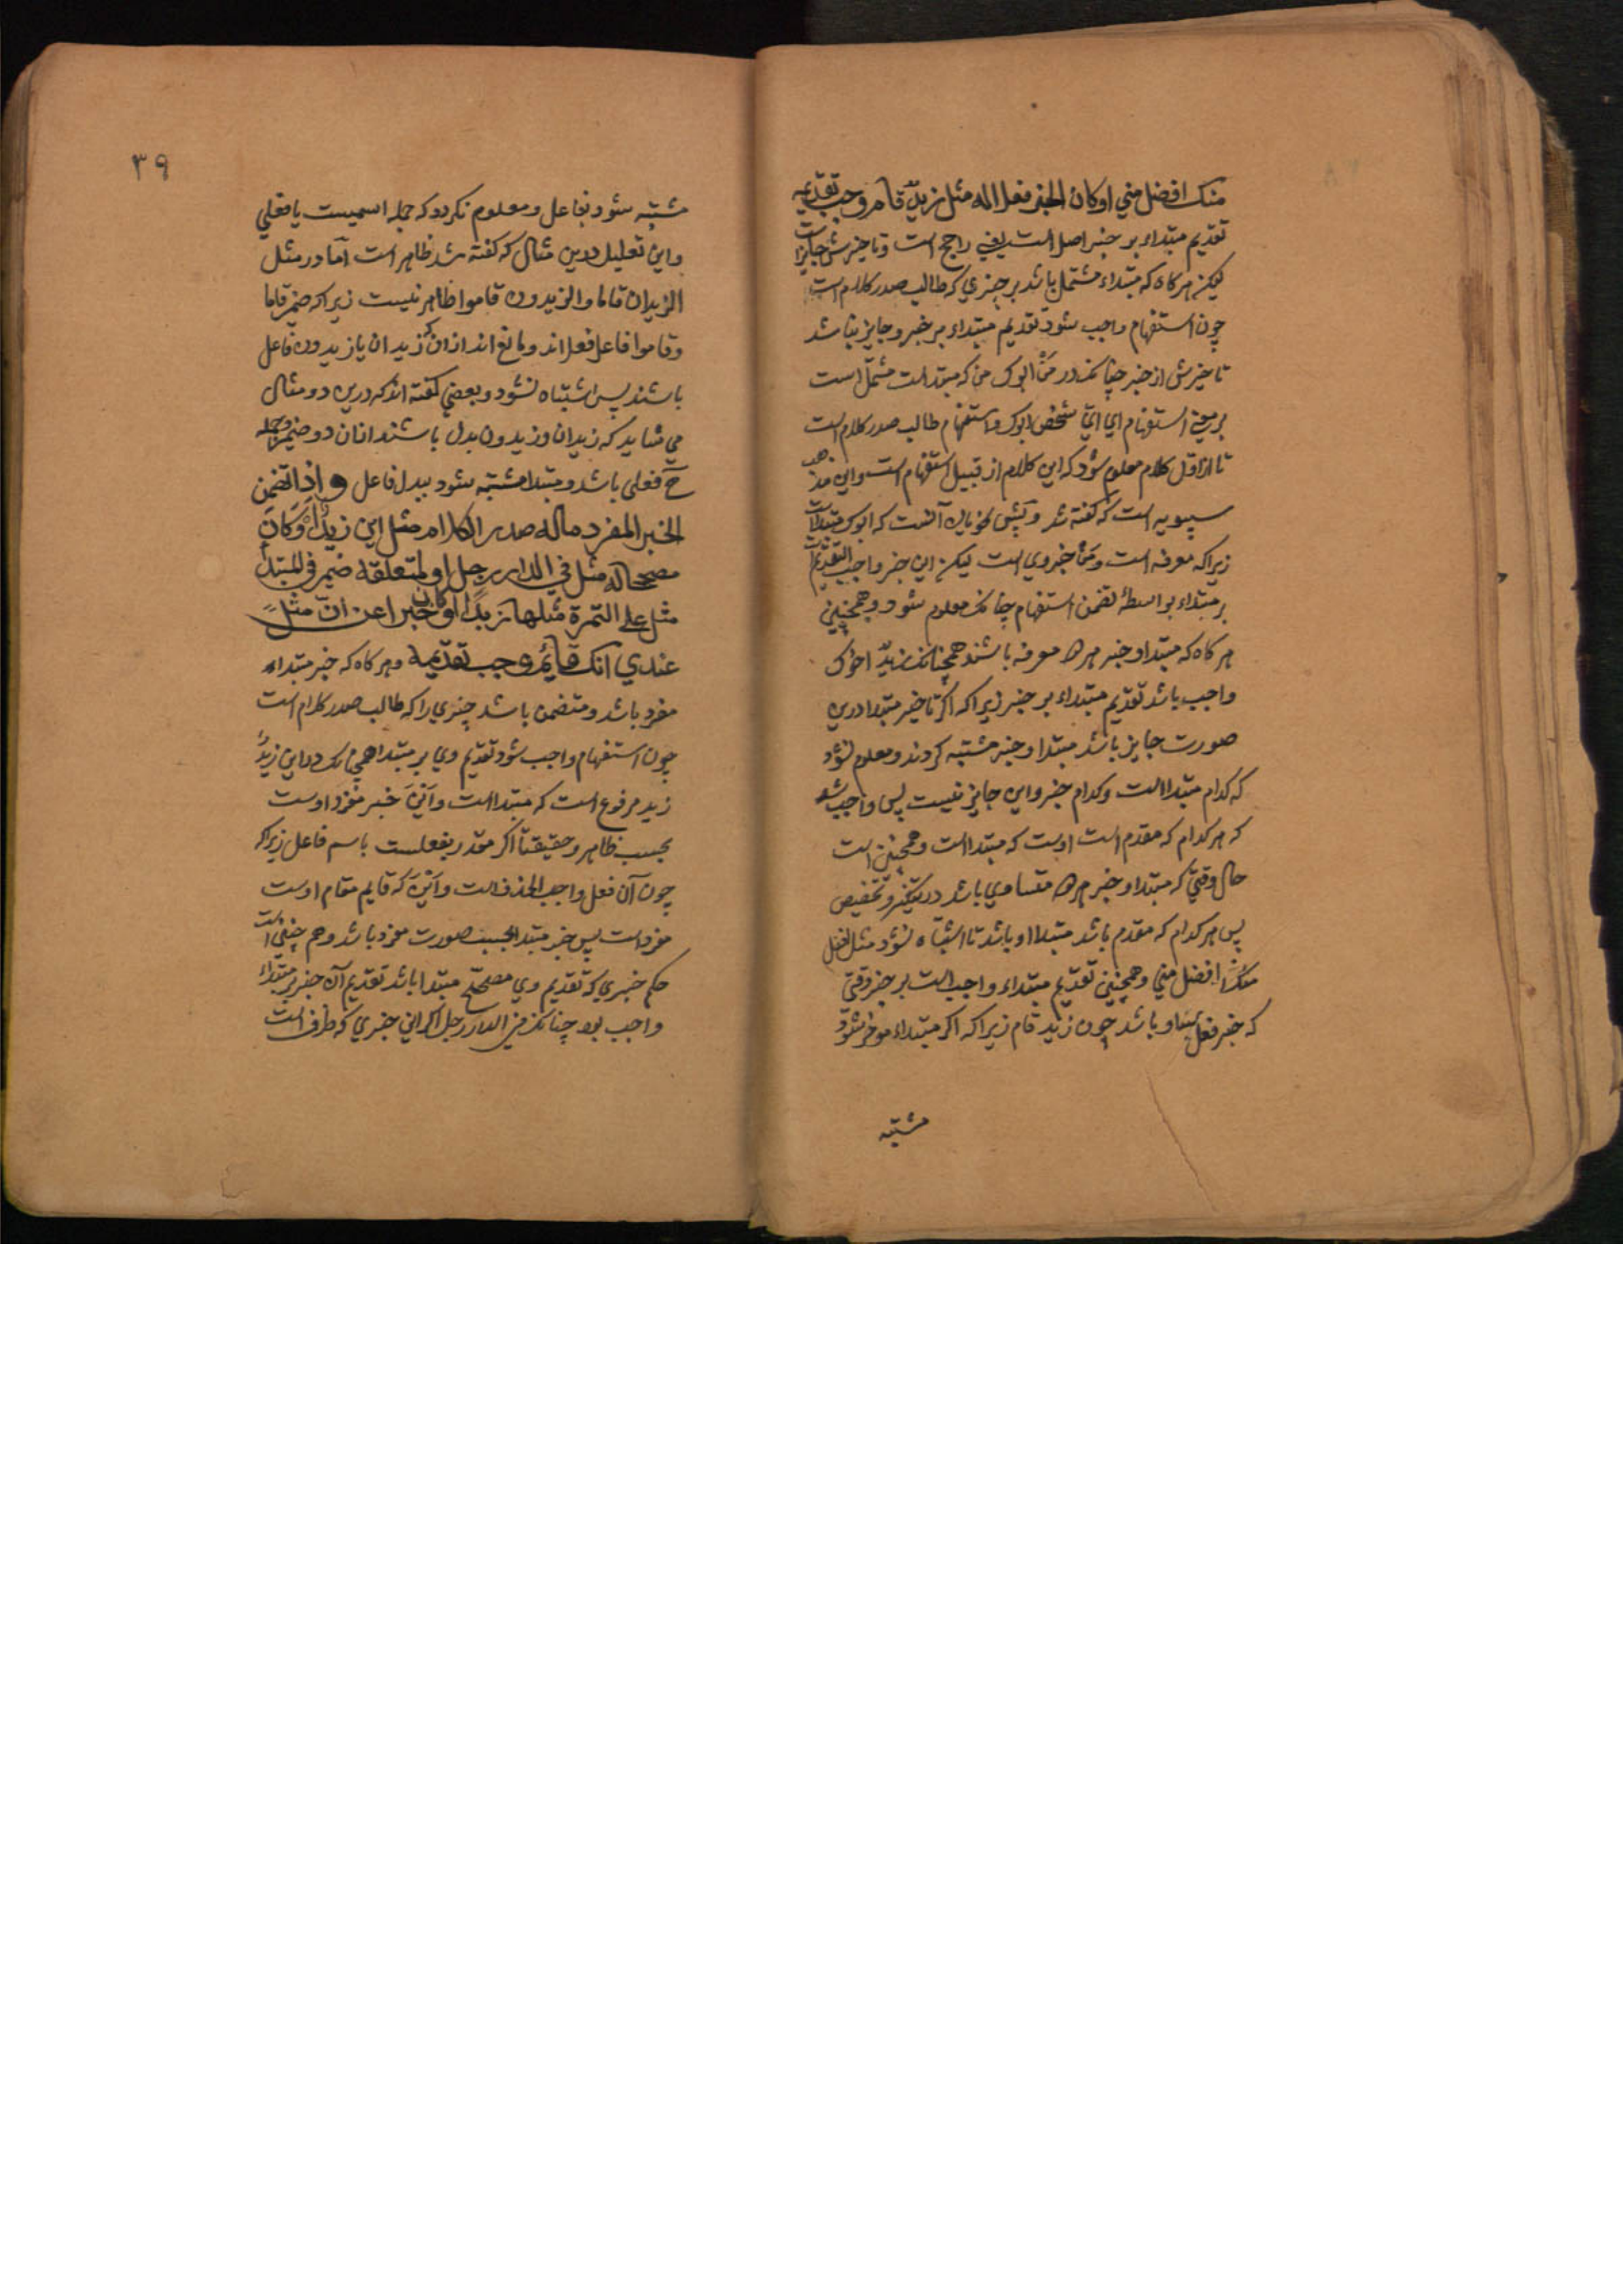 منک افضل مني او کان الخبر فعلا له مثل زیدٌ قام وجب تقدیمه
تقدیم مبتداء بر خبر اصل است یعنی راجح است و تاخیرش جایز است
لیکن هر کاه که مبتداء مشتمل باشد بر چیزي که طالب صدر کلام است
چون استفهام واجب شود تقدیم مبتداء بر خبر و جایز نباشد
تاخیرش از خبر چنانک در مَنْ ابوک من که مبتداست مشتمل است
بر معنی استفهام اي ايّ شخص ابوک و استفهام طالب صدر کلام است
تا از اوّل کلام معلوم شود که این کلام از قبیل استفهام است و این مذهب
سیبویه است که کفته شد و پیش نحویان آنست که ابوک مبتداست
زیرا که معرفه است و مَنْ خبر وي است لیکن این خبر واجب التقدیم است
بر مبتداء بواسطهٔ تضمن استفهام چنانک معلوم شود و همچنین
هر کاه که مبتدا و خبر هر دو معرفه باشند همچنانک زیدٌ اخوک
واجب باشد تقدیم مبتداء بر خبر زیرا که اکر تاخیر مبتدا درین
صورت جایز باشد مبتدا و خبر مشتبه کردند و معلوم نشود
که کدام مبتدا است و کدام خبر و این جایز نیست پس واجب شد
که هر کدام که مقدم است اوست که مبتدا است و همچنین است
حال وقتی که مبتدا و خبر هر دو متساوي باشد در تنکیر و تخصیص
پس هر کدام که مقدم باشد مبتدا او باشد تا اشتباه نشود مثل افضل
منک افضل مني و همچنین تقدیم مبتداء واجب است بر خبر وقتی
که خبر فعل مبتدا باشد چون زید قام زیرا که اکر مبتداء موخر شود
مشتبه
۳۹
مشتبه شود بفاعل و معلوم نکردد که جمله اسمیست یا فعلي
و این تعلیل درین مثال که کفته شد ظاهر است امّا در مثل
الزیدان قاما و الزیدون قاموا ظاهر نیست زیرا که ضمیر قاما
و قاموا فاعل فعل اند و مانع اند از ان که زیدان یا زیدون فاعل
باشند پس اشتباه نشود و بعضي کفته اند که درین دو مثال
مي شاید که زیدان و زیدون بدل باشند از ان دو ضمیر و جمله
ح فعلی باشد و مبتدا مشتبه شود ببدل فاعل و اذا تضمن
الخبر المفرد ماله صدر الکلام مثل این زیدٌ او کان
مصححا له مثل في الدار رجل او لمتعلقه ضمیر في المبتدأ
مثل علی التمرة مثلها زبدًا او کان خبرا عن انّ مثل
عندي انک قائم وجب تقدیمه و هر کاه که خبر مبتداء
مفرد باشد و متضمن باشد چیزي را که طالب صدر کلام است
چون استفهام واجب شود تقدیم وي بر مبتدا همچنانک در این زیدٌ
زید مرفوع است که مبتدا است و اَیْنَ خبر مفرد اوست
بحسب ظاهر و حقیقتاً اکر مقدر بفعلست یا اسم فاعل زیرا که
چون آن فعل واجب الحذف است و اَیْنَ که قایم مقام اوست
مفرد است پس خبر مبتدا بحسب صورت مفرد باشد و هم چنین است
حکم خبري که تقدیم وي مصحّح مبتدا باشد تقدیم آن خبر بر مبتداء
واجب بود چنانک في الدار رجل اکر این خبري که ظرف است